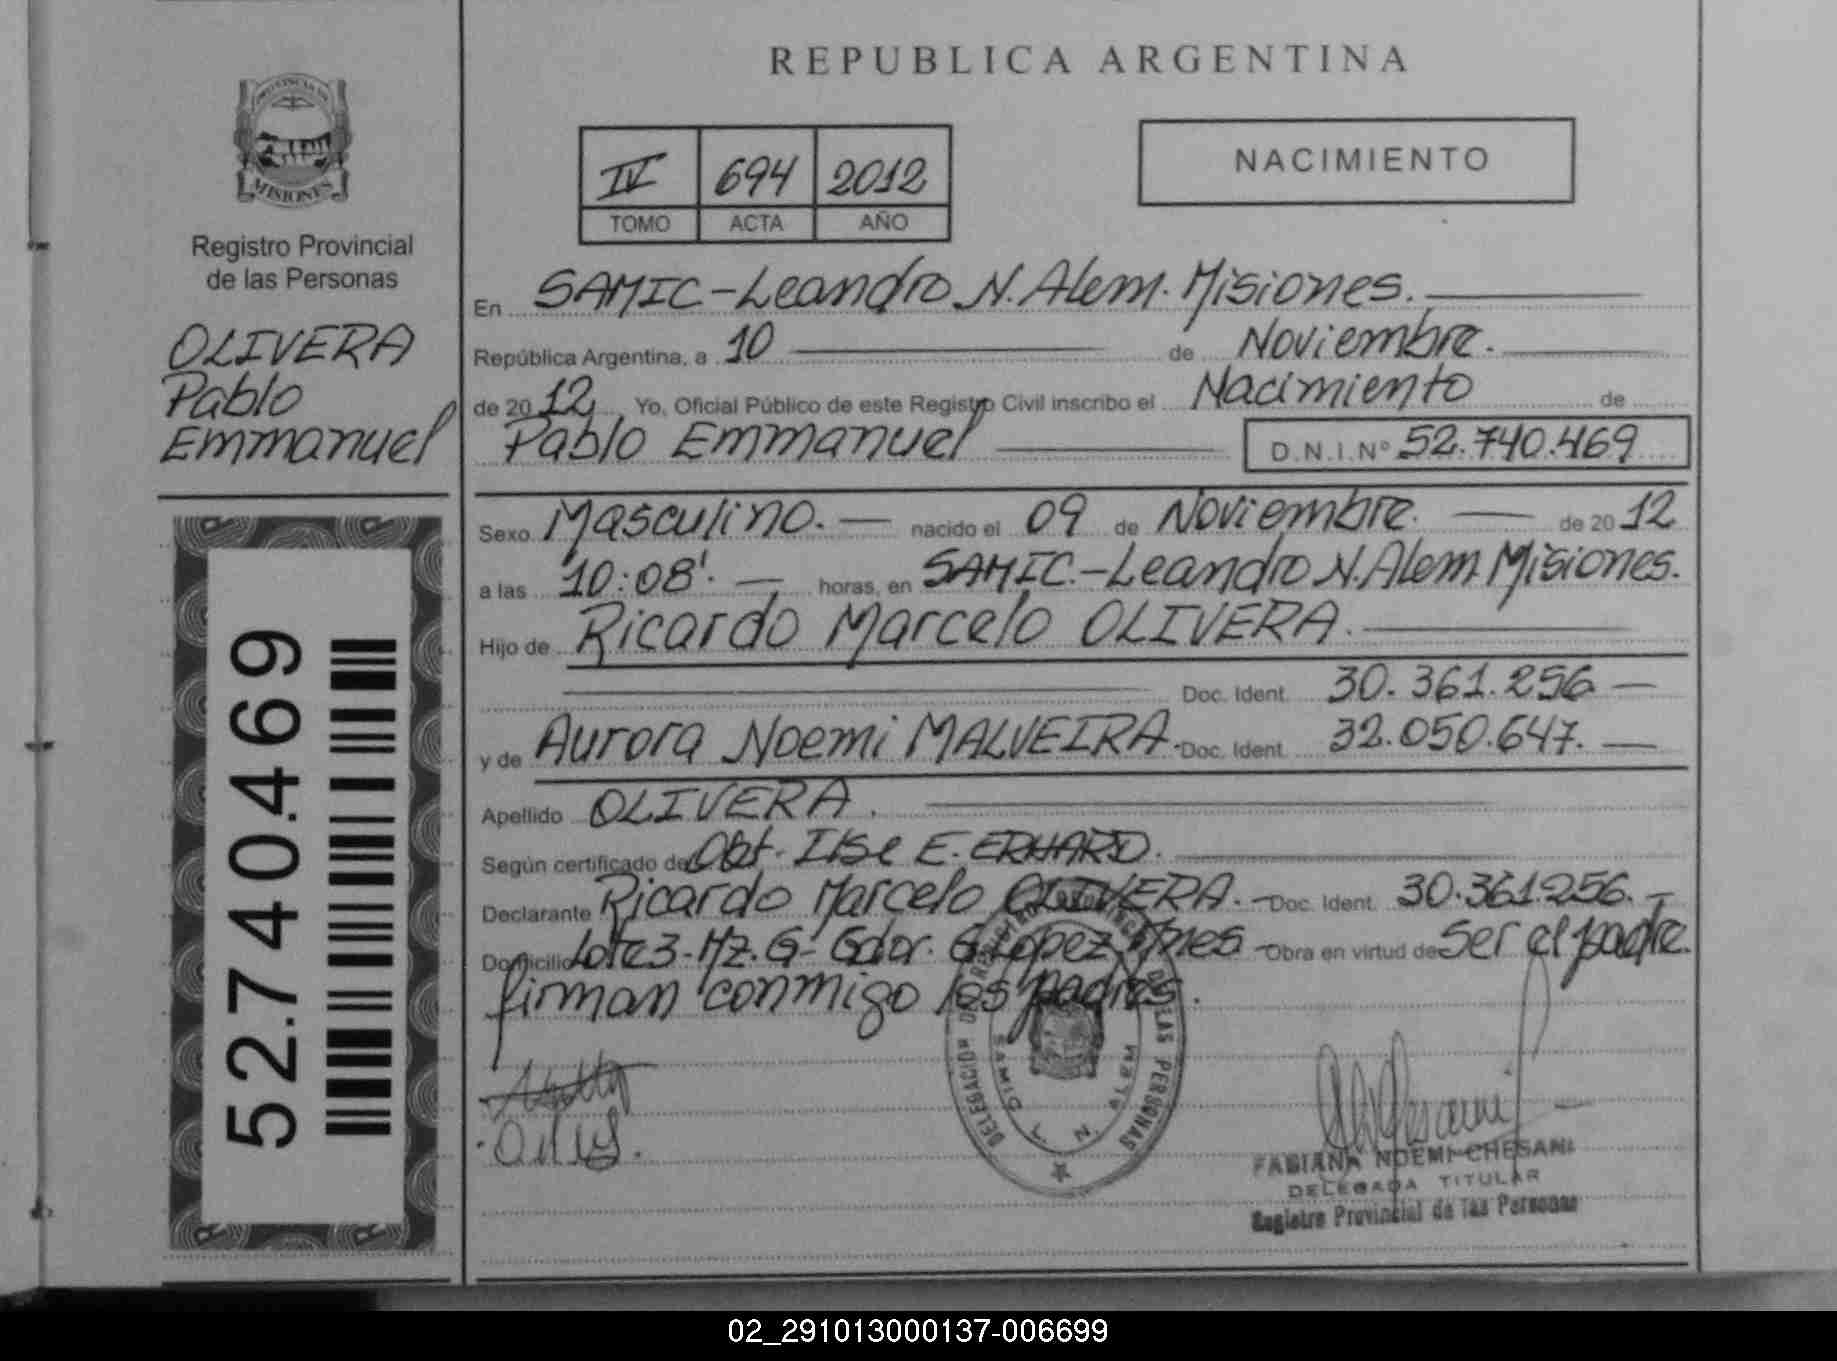 REPUBLICA ARGENTINA
PROVINCIA DE
MISIONES
Registro Provincial
de las Personas
OLIVERA
Pablo
Emmanuel
52.740.469
IV 694 2012
TOMO ACTA AÑO
NACIMIENTO
En SAMIC-Leandro N. Alem. Misiones.
República Argentina, a 10 de Noviembre.
de 2012, Yo, Oficial Público de este Registro Civil inscribo el Nacimiento de
Pablo Emmanuel D.N.I.Nº 52.740.469
Sexo Masculino. nacido el 09 de Noviembre. de 2012
a las 10:08'. horas, en SAMIC.-Leandro N. Alem Misiones.
Hijo de Ricardo Marcelo OLIVERA.
Doc. Ident. 30.361.256
y de Aurora Noemi MALVEIRA. Doc. Ident. 32.050.647.
Apellido OLIVERA.
Según certificado de Obst. Ilse E. ERHARD.
Declarante Ricardo Marcelo OLIVERA. Doc. Ident. 30.361.256.
Domicilio Lote 3-Mz. G- Gdor. G. Lopez Mnes Obra en virtud de Ser el padre.
firman conmigo los padres.
DELEGACION DEL REGISTRO PROVINCIAL DE LAS PERSONAS
SAMIC L. N. ALEM
FABIANA NOEMI CHESANI
DELEGADA TITULAR
Registro Provincial de las Personas
02_291013000137-006699